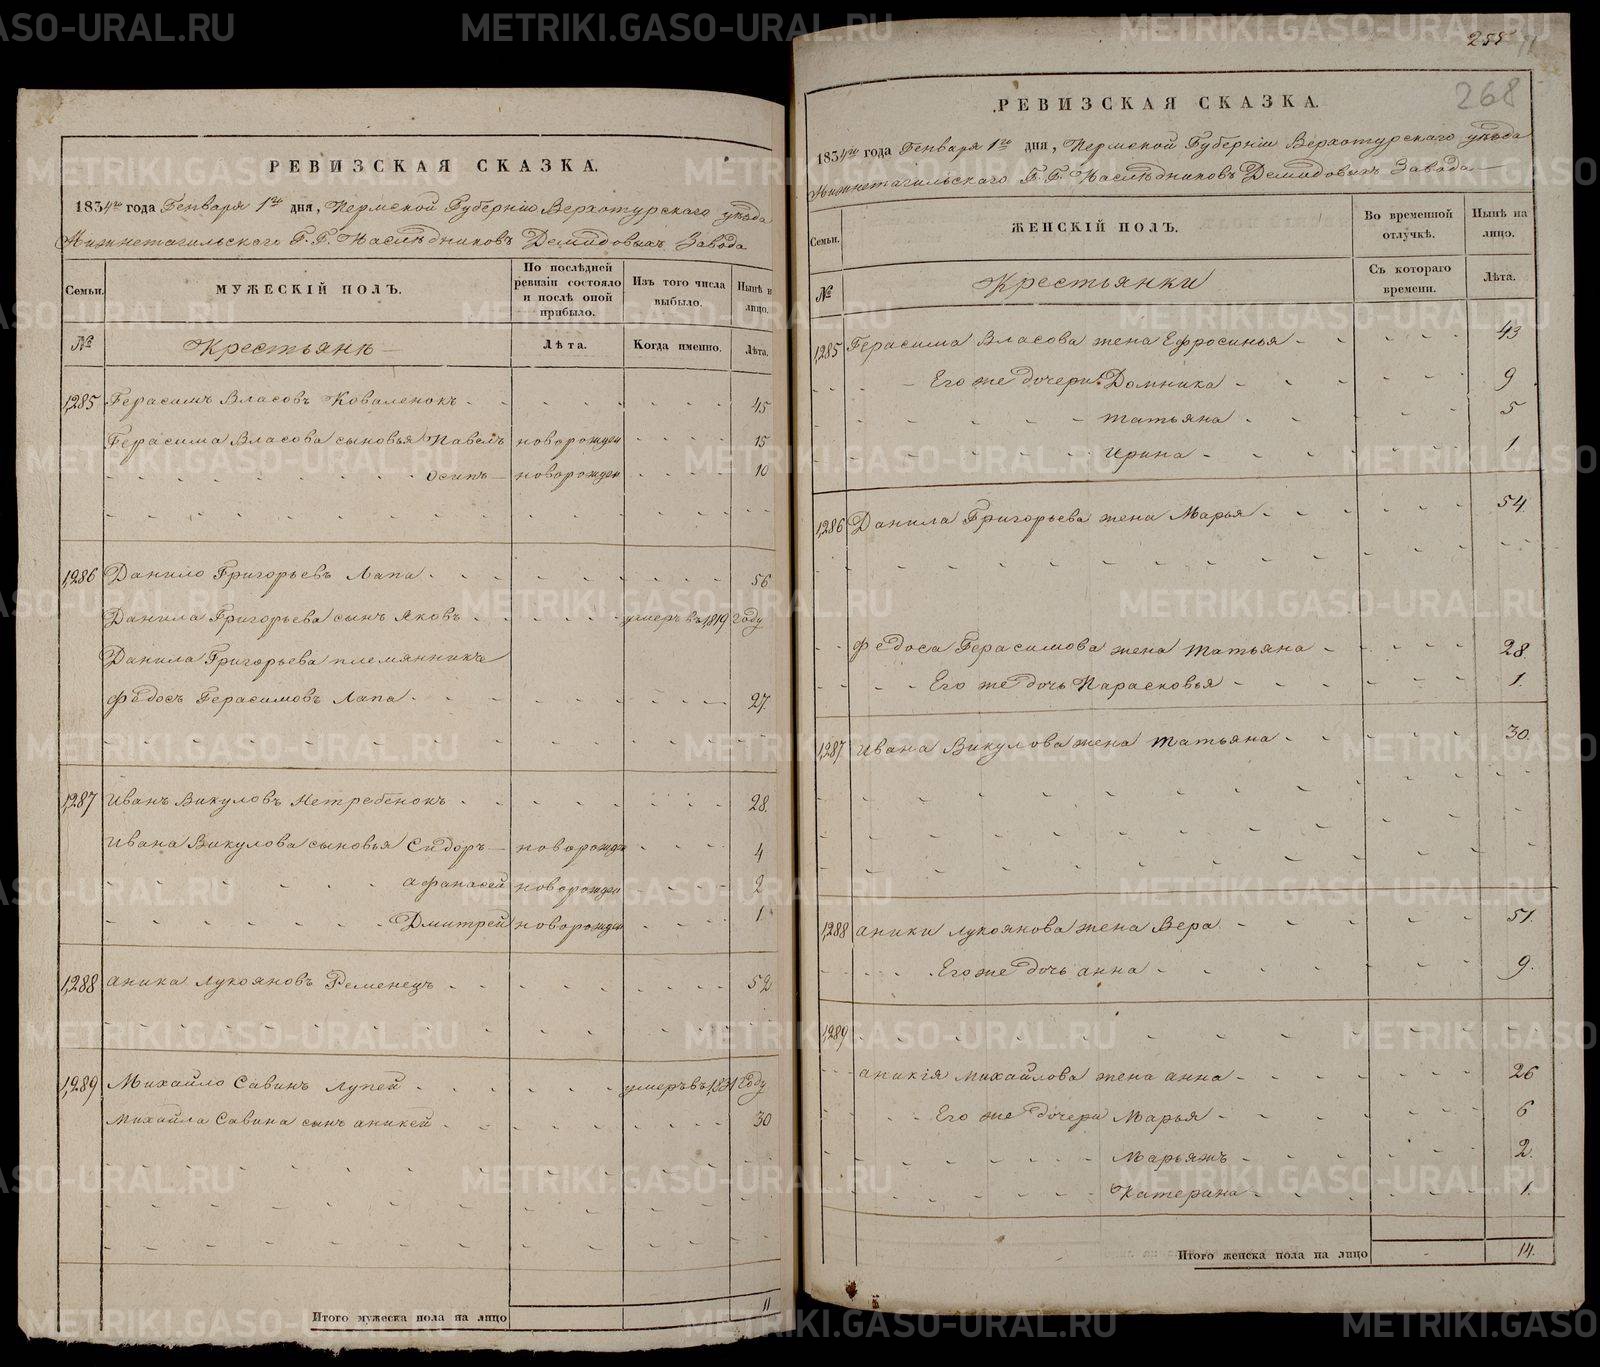 РЕВИЗСКАЯ СКАЗКА.
1834го года Генваря 1го дня, Пермской Губерніи Верхотурскаго уѣзда
Нижнетагильскаго Г. Г. Наслѣдниковъ Демидовыхъ Завода
Семьи. МУЖЕСКІЙ ПОЛЪ. По послѣдней ревизіи состояло и послѣ оной прибыло. Изъ того числа выбыло. Нынѣ н лицо.
№ Крестьянѣ Лѣта. Когда именно. Лѣта.
1,285 Герасимъ Власовъ Коваленокъ 45
Герасима Власова сыновья Павелъ новорожден 15
Осипъ новорожден 10
1,286 Данило Григорьевъ Лапа 56
Данила Григорьева сынъ Яковъ умеръ въ 1,819 году
Данила Григорьева племянникъ
Федосъ Герасимовъ Лапа 27.
1,287 Иванъ Викуловъ Нетребенокъ 28.
Ивана Викулова сыновья Сидоръ новорожден 4
Афанасей новорожден 2
Дмитрей новорожден 1
1,288 Аника Лукояновъ Ременецъ 52
1,289 Михайло Савинъ Лупей умеръ въ 1,831 году
Михайла Савина сынъ Аникей 30
Итого мужеска пола на лицо 11
255
268
РЕВИЗСКАЯ СКАЗКА.
1834го года Генваря 1го дня, Пермской Губерніи Верхотурскаго уѣзда
Нижнетагильскаго Г. Г. Наслѣдниковъ Демидовыхъ Завода
Семьи. ЖЕНСКІЙ ПОЛЪ. Во временной отлучкѣ. Нынѣ на лицо.
№ Крестьянки Съ котораго времени. Лѣта.
1,285 Герасима Власова жена Ефросинья 43
Его же дочери: Домника 9
Татьяна 5
Ирина 1
1,286 Данила Григорьева жена Марья 54
Федоса Герасимова жена Татьяна 28
Его же дочь Парасковья 1.
1,287 Ивана Викулова жена Татьяна 30
1,288 Аники Лукоянова жена Вера 51
Его же дочь Анна 9.
1,289
Аникія Михайлова жена Анна 26
Его же дочери Марья 6
Марьяжъ 2.
Катерина 1.
Итого женска пола на лицо 14.
METRIKI.GASO-URAL.RU